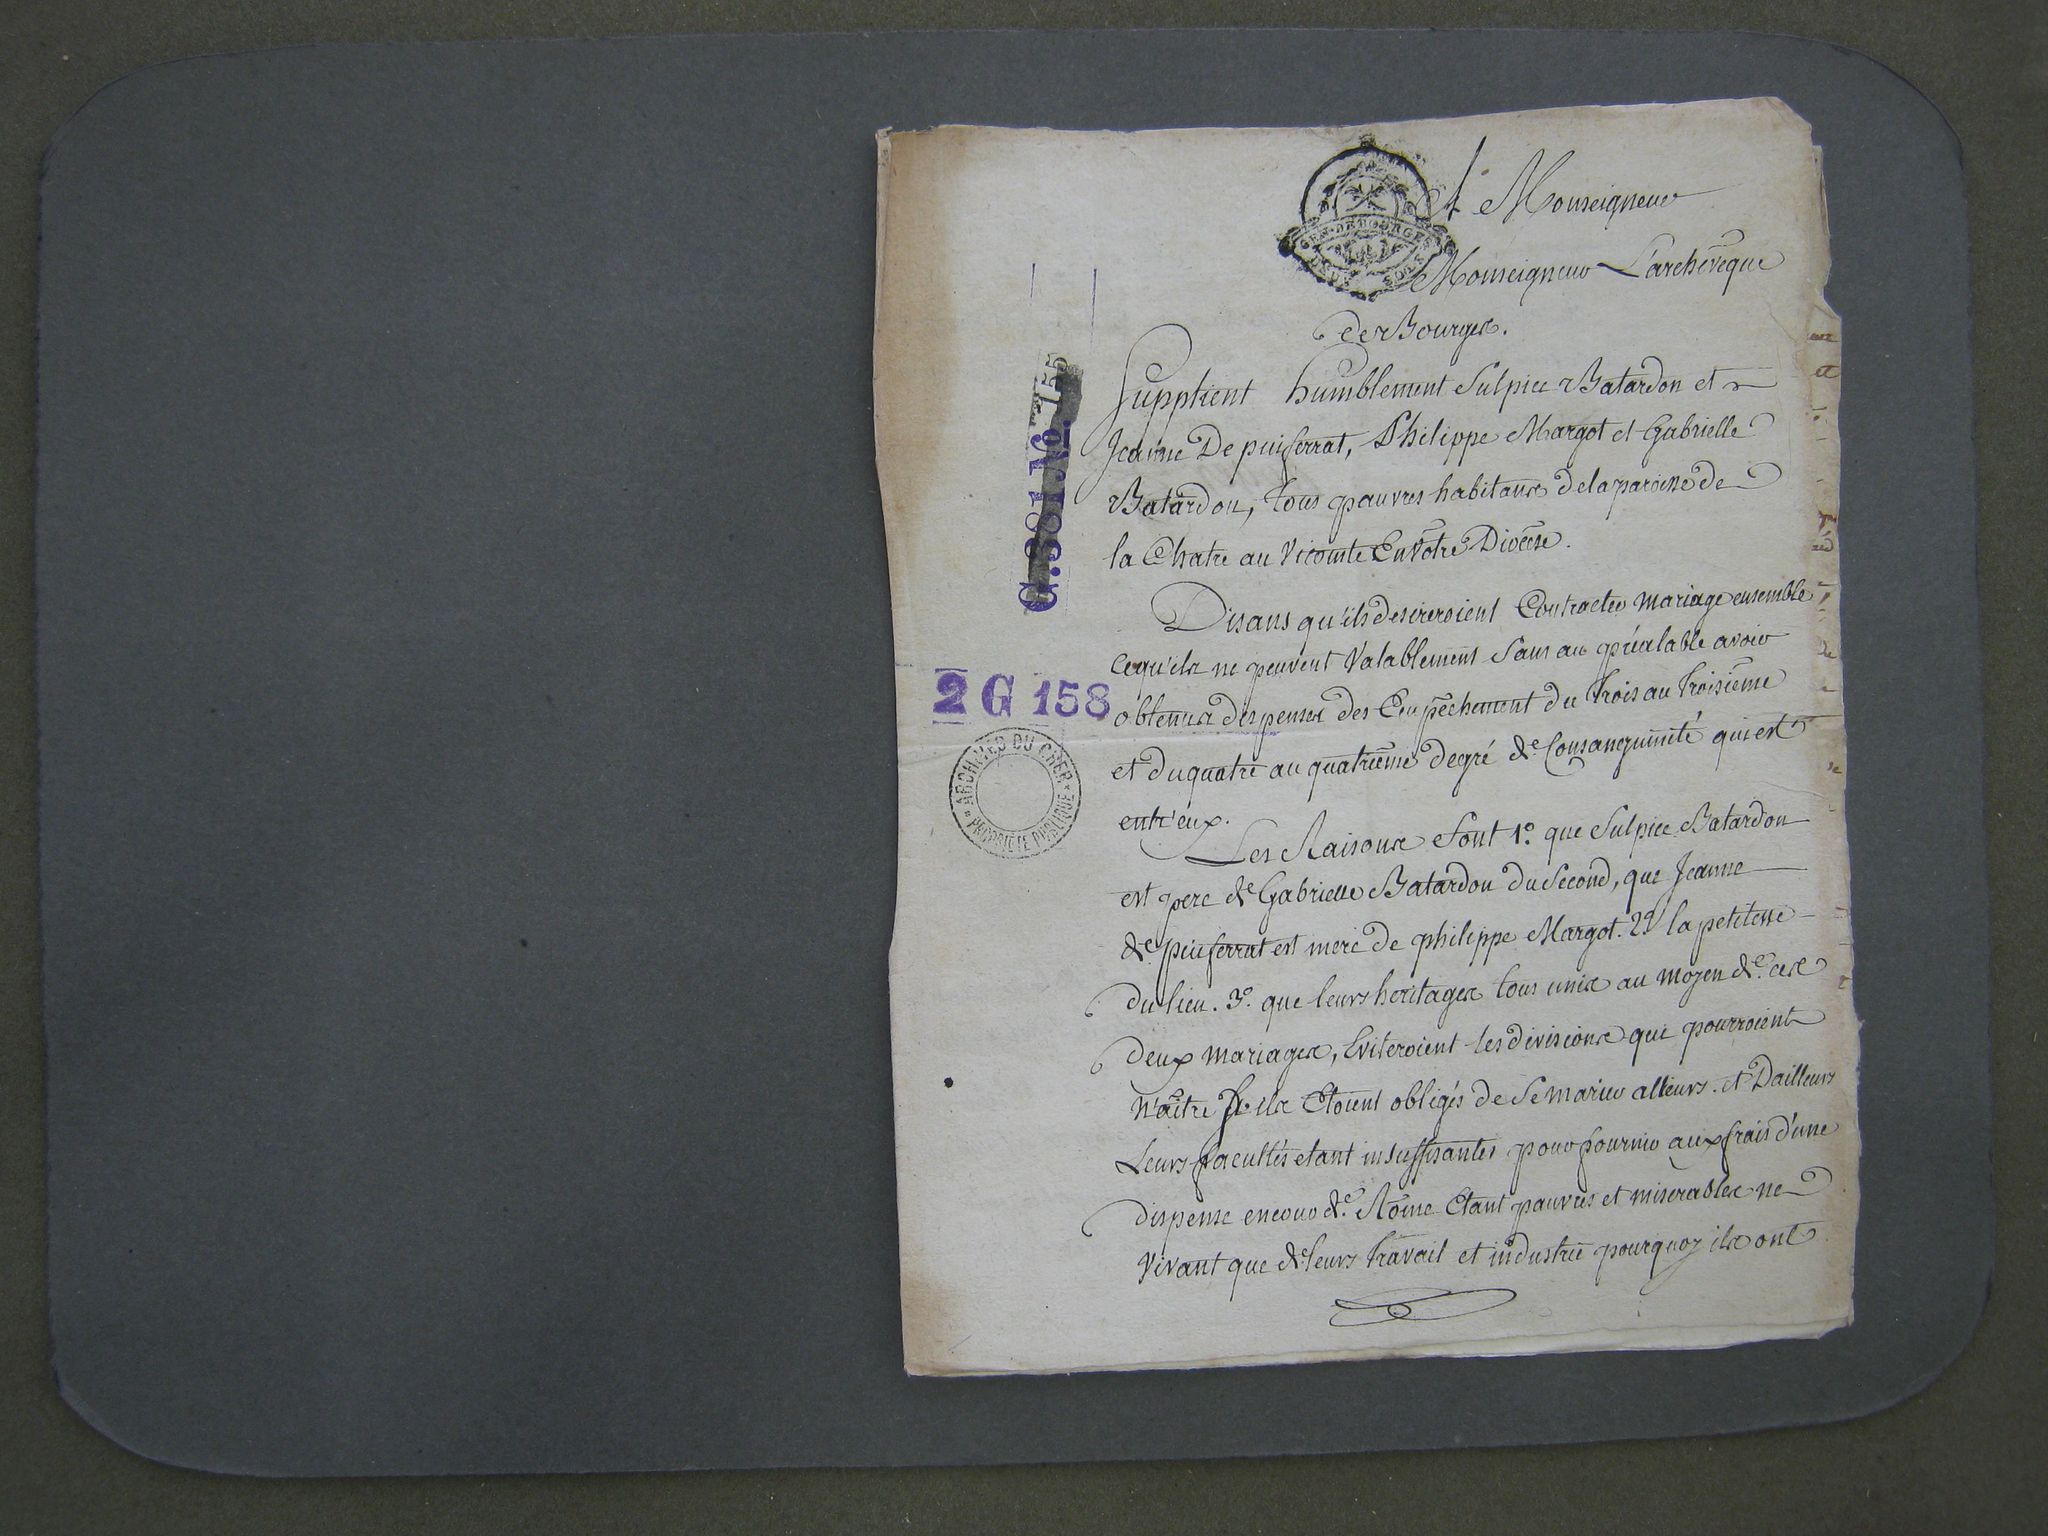 A Monseigneur
GEN. DE BOURGES
DEUX SOLS
Monseigneur L'archevêque
de Bourges.
Supplient humblement Sulpice Batardon et
Jeanne De puiferrat, Philippe Margot et Gabrielle
Batardon, tous pauvres habitans de la paroisse de
la Chatre au Vicomte En Votre Diocèse.
Disans qu'ils desireroient Contracter mariage ensemble
ce qu'ils ne peuvent Valablement Sans au préalable avoir
obtenus dispenses des Empêchement du trois au troisième
et du quatre au quatrième degré de Consanguinité qui est
entr'eux.
Les Raisons Sont 1.o que Sulpice Batardon
est pere de Gabrielle Batardon du Second, que Jeanne
de puiferrat est mere de philippe Margot. 2.o la petitesse
du lieu. 3.o que leurs heritages tous unis au moyen de ces
deux mariages, Eviteroient les divisions qui pourroient
n'aître Si ils Etoient obligés de Se marier alleurs. et Dailleurs
Leurs facultés etant insuffisantes pour fournir aux frais d'une
dispense en cour de Rome Etant pauvres et miserables ne
Vivant que de leurs travail et industrie pourquoy ils ont
G.381.No. 155
2 G 158
ARCHIVES DU CHER
PROPRIÉTÉ PUBLIQUE